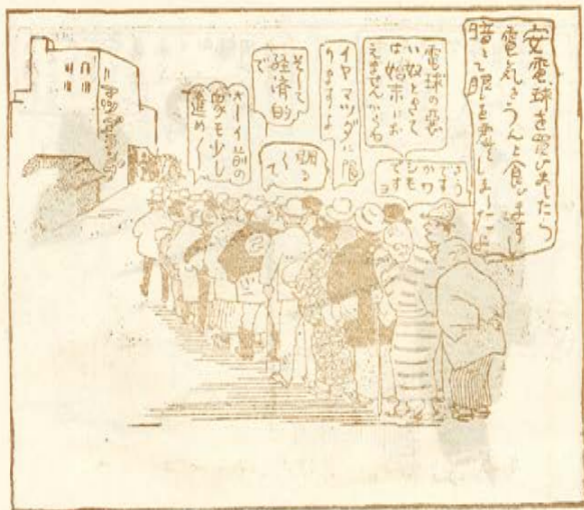 安電球を買ひましたら
電気をうんと食ひますし
暗くて眼を悪くしましたよ
さう
です
かワ
シモ
です
ヨ
電球の悪
い奴ときて
は始末にお
えませんからね
イヤマツダに限
りますよ
明る
くつ
て
そして
経済的
で
オーイ前の
衆も少し
進め〱